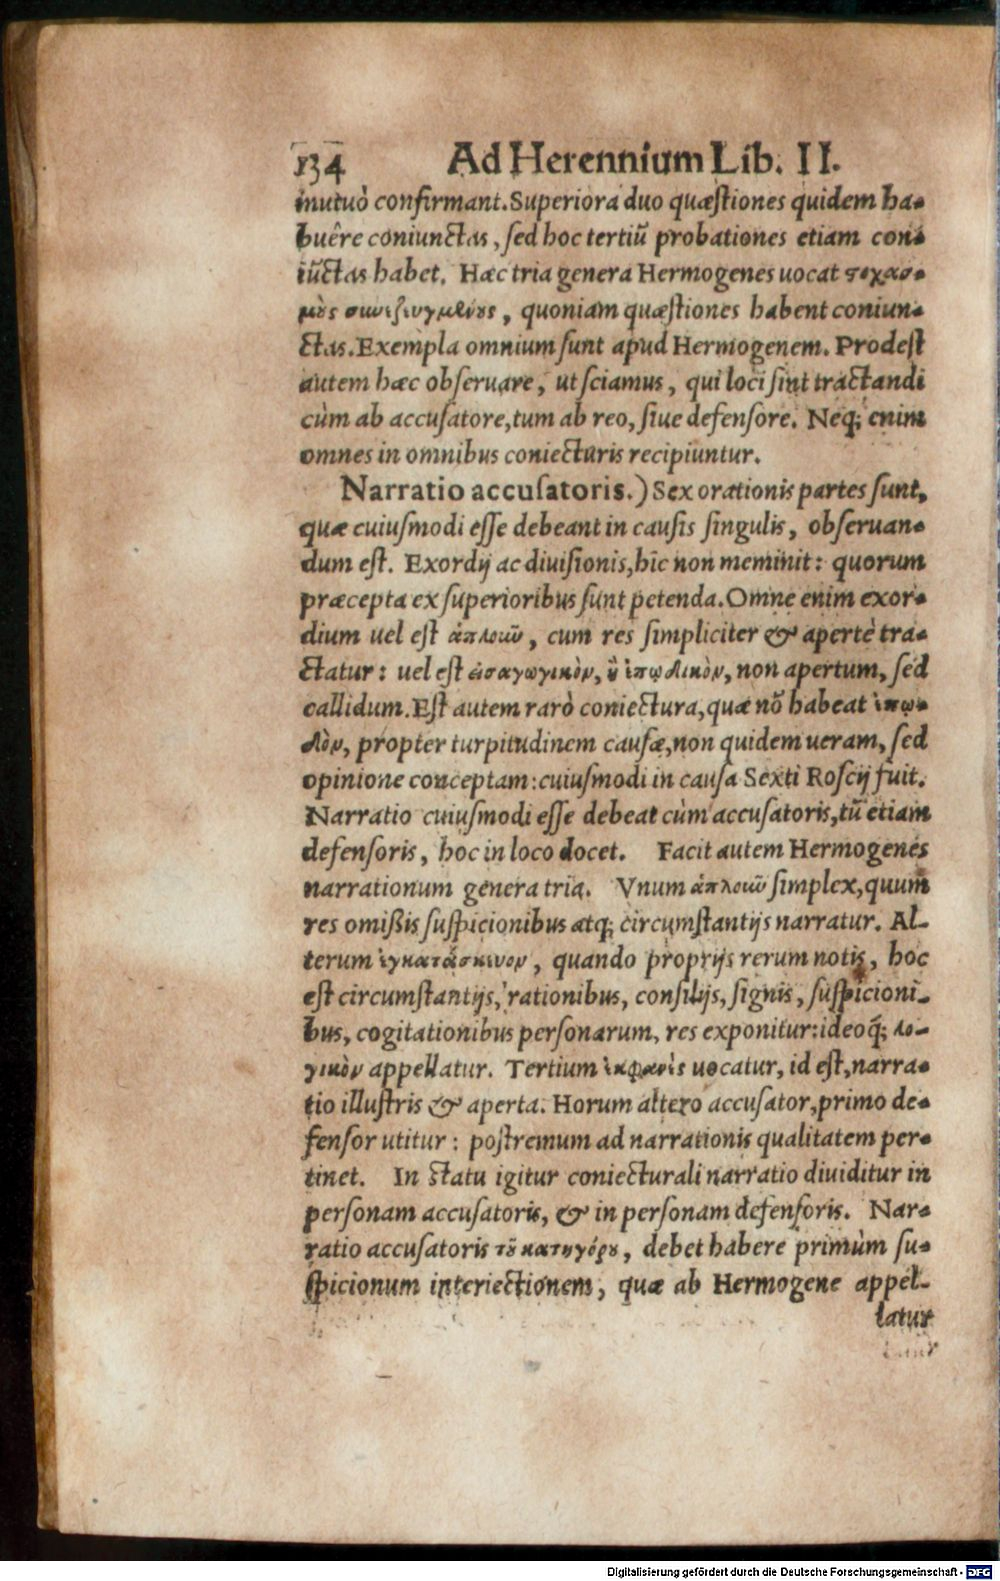 134 Ad Herennium Lib. II.
mutuò confirmant. Superiora duo quæstiones quidem ha-
buêre coniunctas, sed hoc tertiũ probationes etiam con-
iũctas habet. Hæc tria genera Hermogenes uocat ςοχασ-
μοὺς συνεζευγμένους, quoniam quæstiones habent coniun-
ctas. Exempla omnium sunt apud Hermogenem. Prodest
autem hæc obseruare, ut sciamus, qui loci sint tractandi
cùm ab accusatore, tum ab reo, siue defensore. Neq; enim
omnes in omnibus coniecturis recipiuntur.
Narratio accusatoris.) Sex orationis partes sunt,
quæ cuiusmodi esse debeant in causis singulis, obseruan-
dum est. Exordij ac diuisionis, hîc non meminit: quorum
præcepta ex superioribus sunt petenda. Omne enim exor-
dium uel est ἁπλοικῶ, cum res simpliciter & apertè tra-
ctatur: uel est εἰσαγωγικὸν, ἢ ἐπωδικὸν, non apertum, sed
callidum. Est autem rarò coniectura, quæ nõ habeat ἐπω-
δὸν, propter turpitudinem causæ, non quidem ueram, sed
opinione conceptam: cuiusmodi in causa Sexti Roscij fuit.
Narratio cuiusmodi esse debeat cùm accusatoris, tũ etiam
defensoris, hoc in loco docet. Facit autem Hermogenes
narrationum genera tria. Vnum ἁπλοικῶ simplex, quum
res omißis suspicionibus atq; circumstantijs narratur. Al-
terum ἐγκατάσκευον, quando proprijs rerum notis, hoc
est circumstantijs, rationibus, consilijs, signis, suspicioni-
bus, cogitationibus personarum, res exponitur: ideoq̃; λο-
γικὸν appellatur. Tertium ἐκφανὲς uocatur, id est, narra-
tio illustris & aperta. Horum altero accusator, primo de-
fensor utitur: postremum ad narrationis qualitatem per-
tinet. In statu igitur coniecturali narratio diuiditur in
personam accusatoris, & in personam defensoris. Nar-
ratio accusatoris τοῦ κατηγόρου, debet habere primùm su-
spicionum interiectionem, quæ ab Hermogene appel-
latur
Digitalisierung gefördert durch die Deutsche Forschungsgemeinschaft - DFG